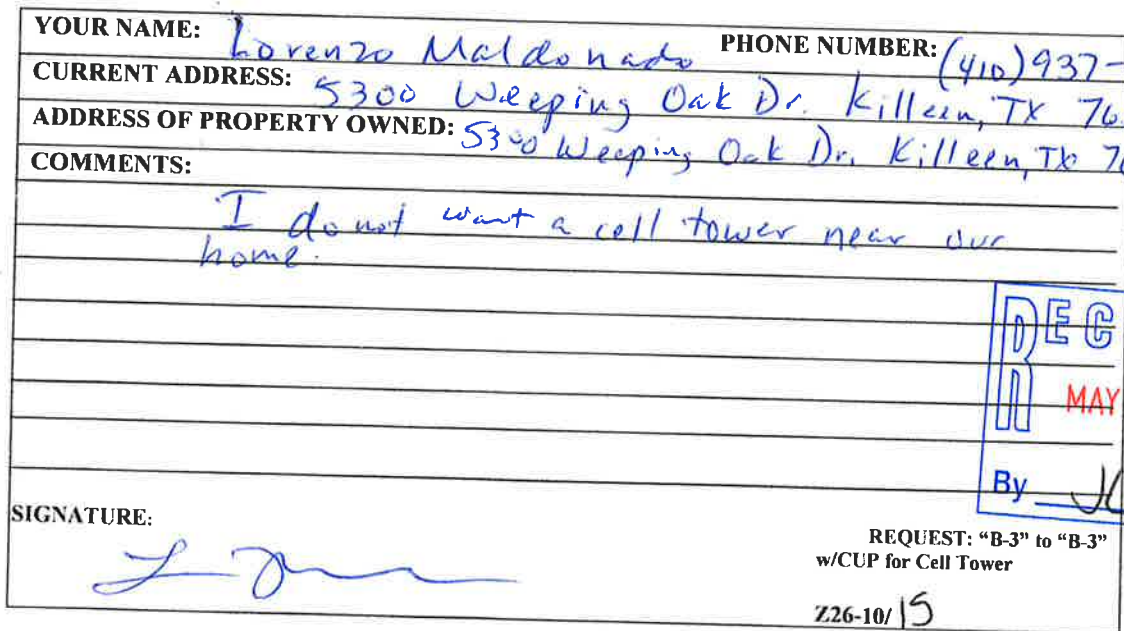 YOUR NAME: Lorenzo Maldonado PHONE NUMBER: (410)937-
CURRENT ADDRESS: 5300 Weeping Oak Dr. Killeen, TX 76
ADDRESS OF PROPERTY OWNED: 5300 Weeping Oak Dr. Killeen, TX 76
COMMENTS:
I do not want a cell tower near our
home.
REC
MAY
By
SIGNATURE:
REQUEST: “B-3” to “B-3”
w/CUP for Cell Tower
Z26-10/15